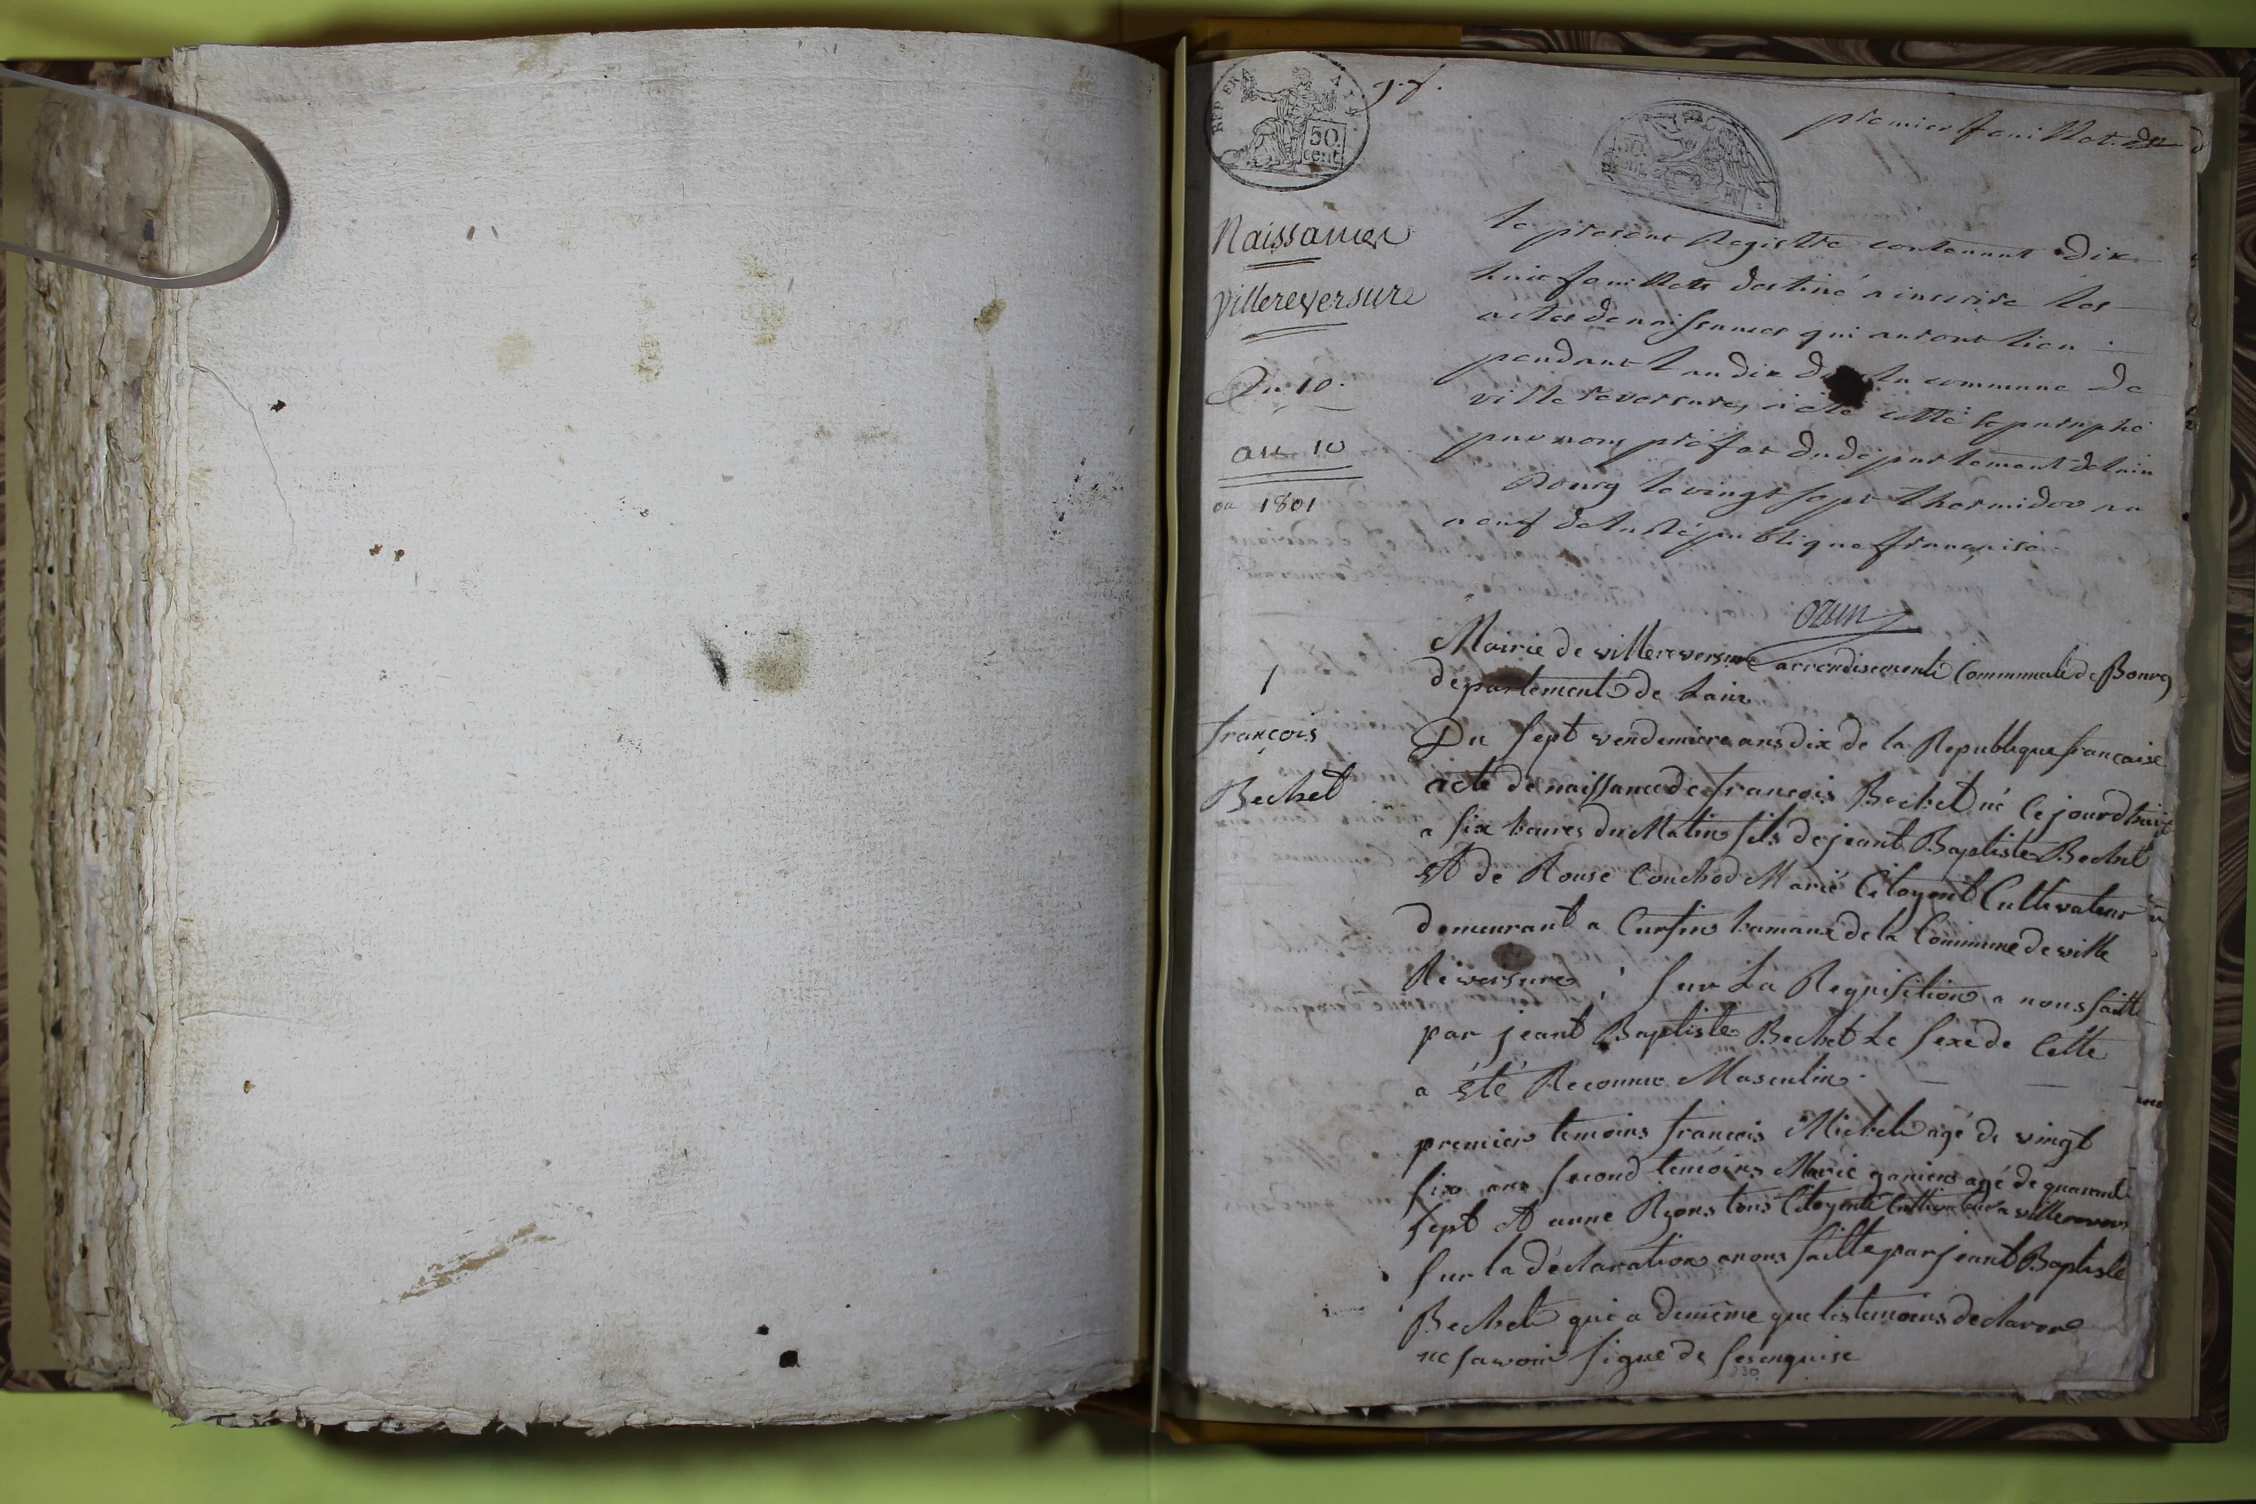 REP. FRA
50
cent
premier feuillet
50
Naissances
villereversure
Du 10
an 10
ou 1801
le present Registre contenant Dix
huit feuillets destiné a inscrire les
actes de naissances qui auront lieu
pendant l'an dix de la commune de
villereversure, a été cotté & paraphé
par nous préfet du département de l'ain
Bourg le vingt sept thermidor an
neuf de la République française
ozun
Mairie de villereversure arrondisement Communale de Bourg
département de Lain
1
françois
Bechet
Du sept vendemiere ans dix de la Republique francaise
acte de naissance de francois Bechet né Cejourdhuit
a six heures du Matin fils de jeant Baptiste Bechet
et de Rouse Couchod Marié Citoyent Cultivateur
demeurant a Cursin hamaux de la Commune de ville
Reversure ; sur La Requisition a nous faitte
par jeant Baptiste Bechet Le sexe de Cette
a été Reconnue Masculin.
premier temoins francois Michel agé de vingt
six ans second temoins Marie ganier agé de quarante
sept et anne Ryons tous Citoyent Cultivateur a villerevers
sur la déclaration a nous faitte par jeant Baptiste
Bechet qui a de même que les temoins declare
ne savoir signe de ses enquise